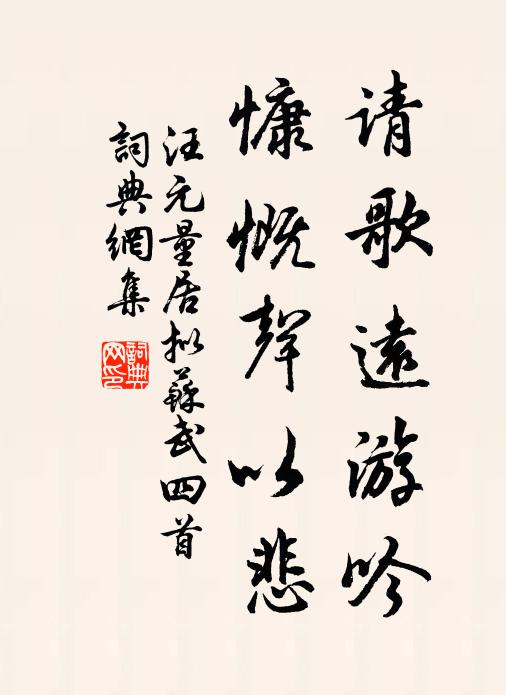 请歌遠游吟
慷慨聲以悲
汪元量居拟蘇武四首
詞典網集
詞典网印